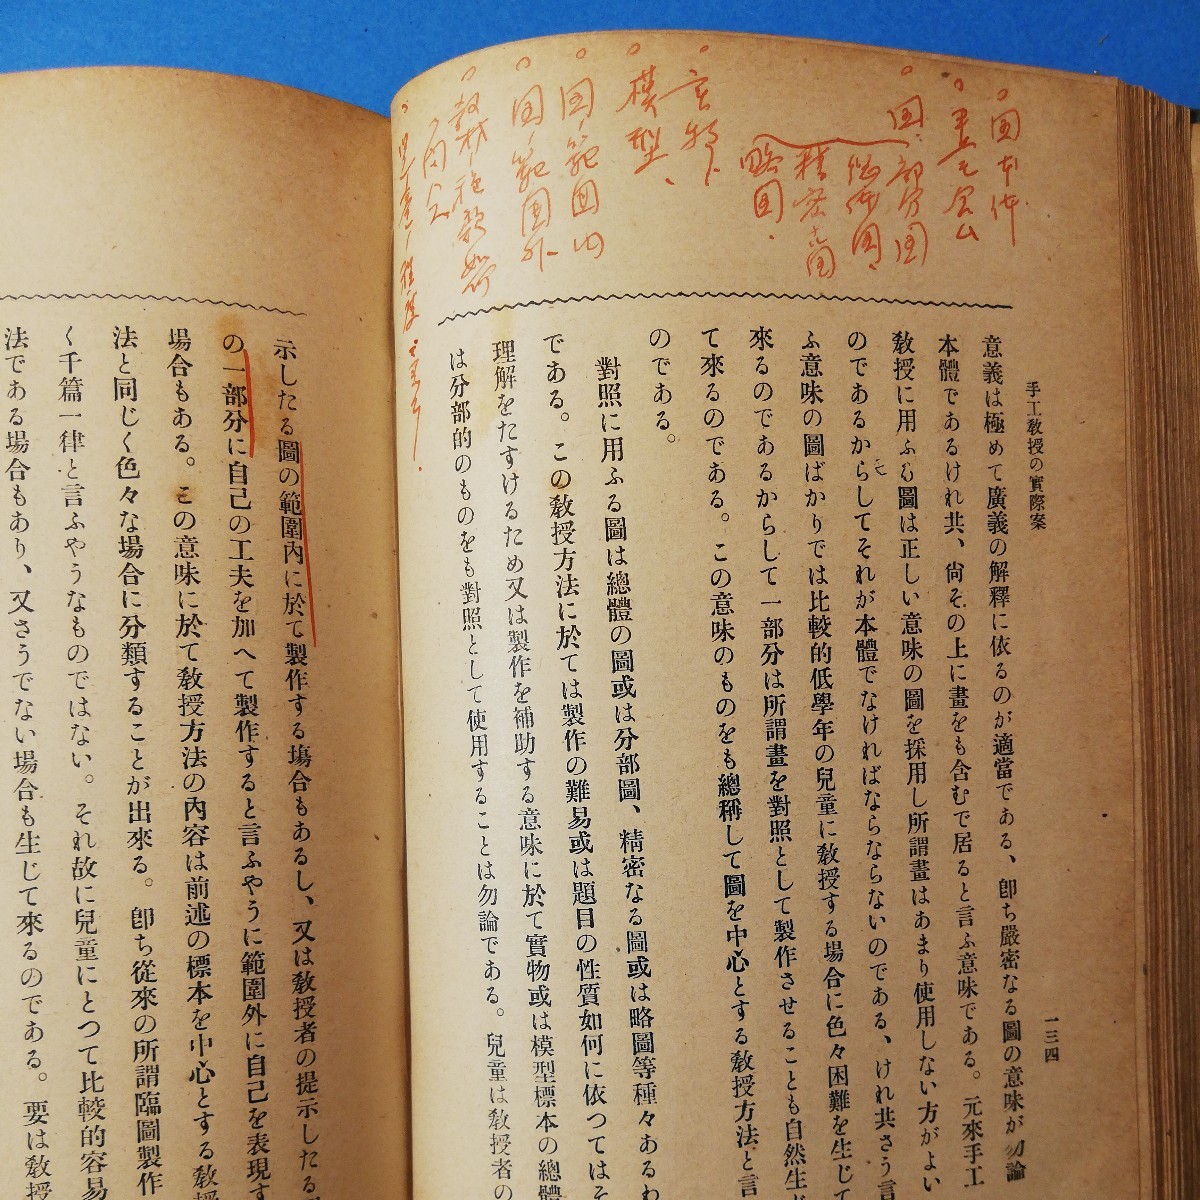 手工敎授の實際案
一三四
圖本体
畫モ含ム
図、部分図
総体図、
精密図
略図、
実物ト
模型、
図ノ範囲内
図ノ範囲外
意義は極めて廣義の解釋に依るのが適當である、卽ち嚴密なる圖の意味が勿論
本體であるけれ共、尙その上に畫をも含むで居ると言ふ意味である。元來手工
敎授に用ふる圖は正しい意味の圖を採用し所謂畫はあまり使用しない方がよい
のであるからしてそれが本體でなければならならないのである、けれ共さう言
ふ意味の圖ばかりでは比較的低學年の兒童に敎授する場合に色々困難を生じて
來るのであるからして一部分は所謂畫を對照として製作させることも自然生じ
て來るのである。この意味のものをも總稱して圖を中心とする敎授方法と言
のである。
對照に用ふる圖は總體の圖或は分部圖、精密なる圖或は略圖等種々あるわ
である。この敎授方法に於ては製作の難易或は題目の性質如何に依つてはそ
理解をたすけるため又は製作を補助する意味に於て實物或は模型標本の總體
は分部的のものをも對照として使用することは勿論である。兒童は敎授者の
示したる圖の範圍內に於て製作する塲合もあるし、又は敎授者の提示したる
の一部分に自己の工夫を加へて製作すると言ふやうに範圍外に自己を表現す
場合もある。この意味に於て敎授方法の內容は前述の標本を中心とする敎
法と同じく色々な場合に分類することが出來る。卽ち從來の所謂臨圖製作
く千篇一律と言ふやうなものではない。それ故に兒童にとつて比較的容易
法である場合もあり、又さうでない場合も生じて來るのである。要は敎授